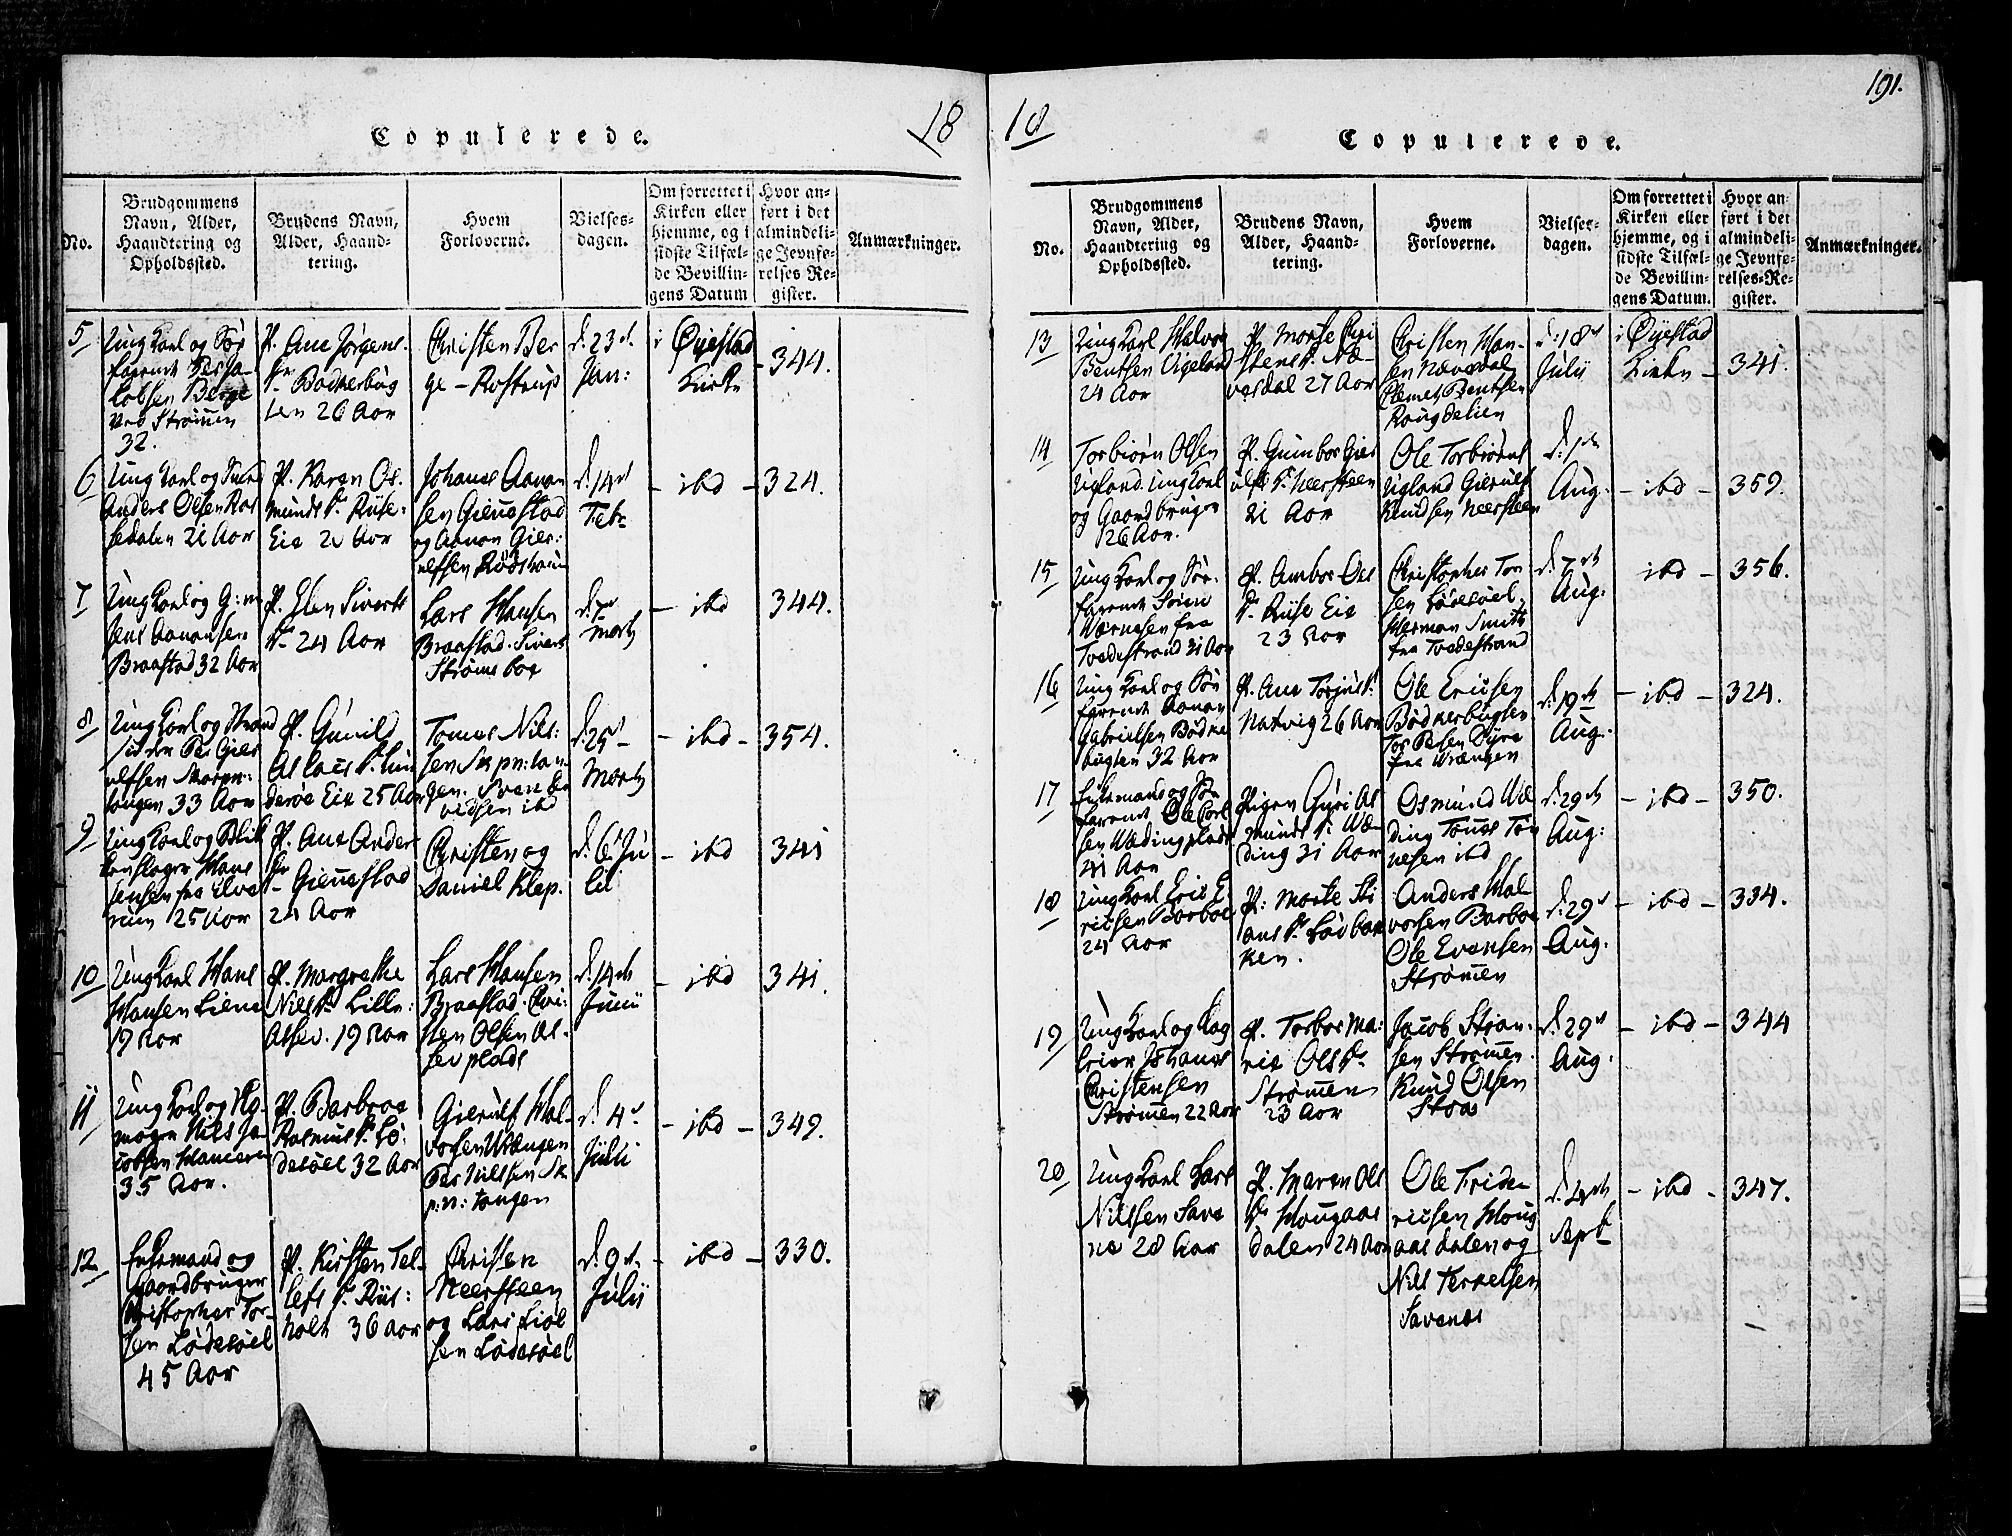 191.
Copulerede.
18
No.
Brudgommens
Navn, Alder,
Haandtering og
Opholdssted.
Brudens Navn,
Alder, Haand-
tering.
Hvem
Forloverne.
Vielses-
dagen.
Om forrettet i
Kirken eller
hjemme, og i
sidste Tilfæl-
de Bevillin-
gens Datum
Hvor an-
ført i det
almindeli-
ge Jevnfø-
relses-Re-
gister.
Anmærkninger.
5
Ung Karl og Søe
farende Per Ja-
cobsen Berge
ved Strømen
32.
P. Ane Jørgens-
Dr Bodkerbug
ten 26 Aar
Christen Ber
ge - Rostrup
d. 23d
Jan:
i Øyestad
Kirke
344.
6
Anders Olsen Ros
sedalen 21 Aar
P. Karen Os-
munds Dr Riise-
Eie 20 Aar
Johanes Aanon
sen Gieustad
og Aanon Gier:
ulfsen Rødstoin
d. 14d
Febr
- ibd -
324.
7
Jens Aanonsen
Braastad 32 Aar
P. Elen Siverts
Dr 24 Aar
Lars Hansen
Braastad. Sivert
Strømsboe
Marty
- ibd
344.
8
Ung Karl og Strand
sidder Per Gier
ulfsen
tangen 33 Aar
P. Gunild
Aslacs Dr Lin
deröe Eie 25 Aar
Tomas Nils:
gen. Sven
ibd
d. 25d
Marty
- ibd -
354.
9
Ung Karl og Blik
kenslager Hans
Jensen fra Elve
rum 25 Aar
P. Ane Anders
Dr - Gieustad
24 Aar
Christen og
Daniel Klep.
d. 6d Ju
lii
- ibd
341
10
Ung Karl Hans
Hansen Liene
19 Aar
P. Margrethe
Nils Dr Lille:
Alsev. 19 Aar
Lars Hansen
Braastad. Chri:
sten Olsen Al-
sev plads
d. 14de
Junii
- ibd
341.
11
Nils Ja-
cobsen
35 Aar.
P. Barbroe
Rasmus Dr Lö:
desöel 32 Aar
Gierulf Hal-
vorsen Wrængen
Per Nilsen Sk
p:n: tangen
d. 4d
Julii
- ibd -
349.
12
Enkemand og
Gaardbruger
Christopher Tor-
sen Lödesöel
45 Aar
P. Kirsten Tel-
lefs Dr Riis:
holt 36 Aar
Christen
Neersteen
og Lars Liol
sen Lödesöel
d. 9d
Julii
- ibd -
330.
18
Copulerede.
No.
Brudgommens
Navn, Alder,
Haandtering og
Opholdssted.
Brudens Navn,
Alder, Haand-
tering.
Hvem
Forloverne.
Vielses-
dagen.
Om forrettet i
Kirken eller
hjemme, og i
sidste Tilfæl-
de Bevillin-
gens Datum.
Hvor an-
ført i det
almindeli-
ge Jevnfø-
relses-Re-
gister.
Anmærkninger.
13
Ung Karl Halvor
Bentsen Eigeland
24 Aar
P. Marte Chri
stens Dr Næ-
vesdal 27 Aar
Christen Han-
sen Nævesdal
Clemet Bentsen
Rougdelien
d. 18d
Julii
i Øyestad
Kirke -
341.
14
Torbiørn Olsen
Ugland. Ung Karl
og Gaardbruger
26 Aar.
P. Gunbor Gier
ulfs Dr Neersteen
21 Aar
Ole Torbiørns
Ugland Gierulf
Knudsen Neersteen
Aug.
- ibd -
359.
15
Ung Karl og Søe-
farende Søren
Wernesen fra
Tvedestrand 31 Aar
P. Anbor Ols
Dr Riise Eie
23 Aar
Christopher Tor
sen Lödesöel.
Herman Smith
fra Tvedestrand
d. 7de
Aug.
ibd -
356.
16
Ung Karl og Søe
farende Aanon
Gabrielsen Bødke
bugten 32 Aar
P. Ane Torjus Dr
Natvig 26 Aar
Ole Ericsen
Bødkerbugten
fra Wrængen
d. 19de
Aug.
- ibd -
324.
17
Enkemand og Søe
farende Ole Carl
sen Wæding plads
41 Aar
Pigen Guri As
munds Dr Wæ-
ding 31 Aar
Osmund Wæ
ding Tones Tøn
nesen ibd
d. 29de
Aug:
- ibd -
350.
18
Ung Karl Eric E-
ricsen Barboe
24 Aar
P: Marte Sti
ans Dr Løvbak
ken.
Anders Hal
vorsen Barboe
Ole Evensen
Strømen
d. 29d
Aug.
- ibd -
334.
19
Johannes
Christensen
Strømen 22 Aar
P. Torbor Ma:
rie Ols Dr
Strømen
23 Aar
Jacob Stian-
sen Strømen.
Knud Olsen
Stoas
d. 29d
Aug.
- ibd -
344
20
Ung Karl Lars
Nilssen Save
næ 28 Aar
P. Maren Ols
Dr Hougaas
dalen 24 Aar
Ole Fride-
ricsen Houg
aasdalen og
Nils Terkelsen
Savenæs
Sept
- ibd -
347.